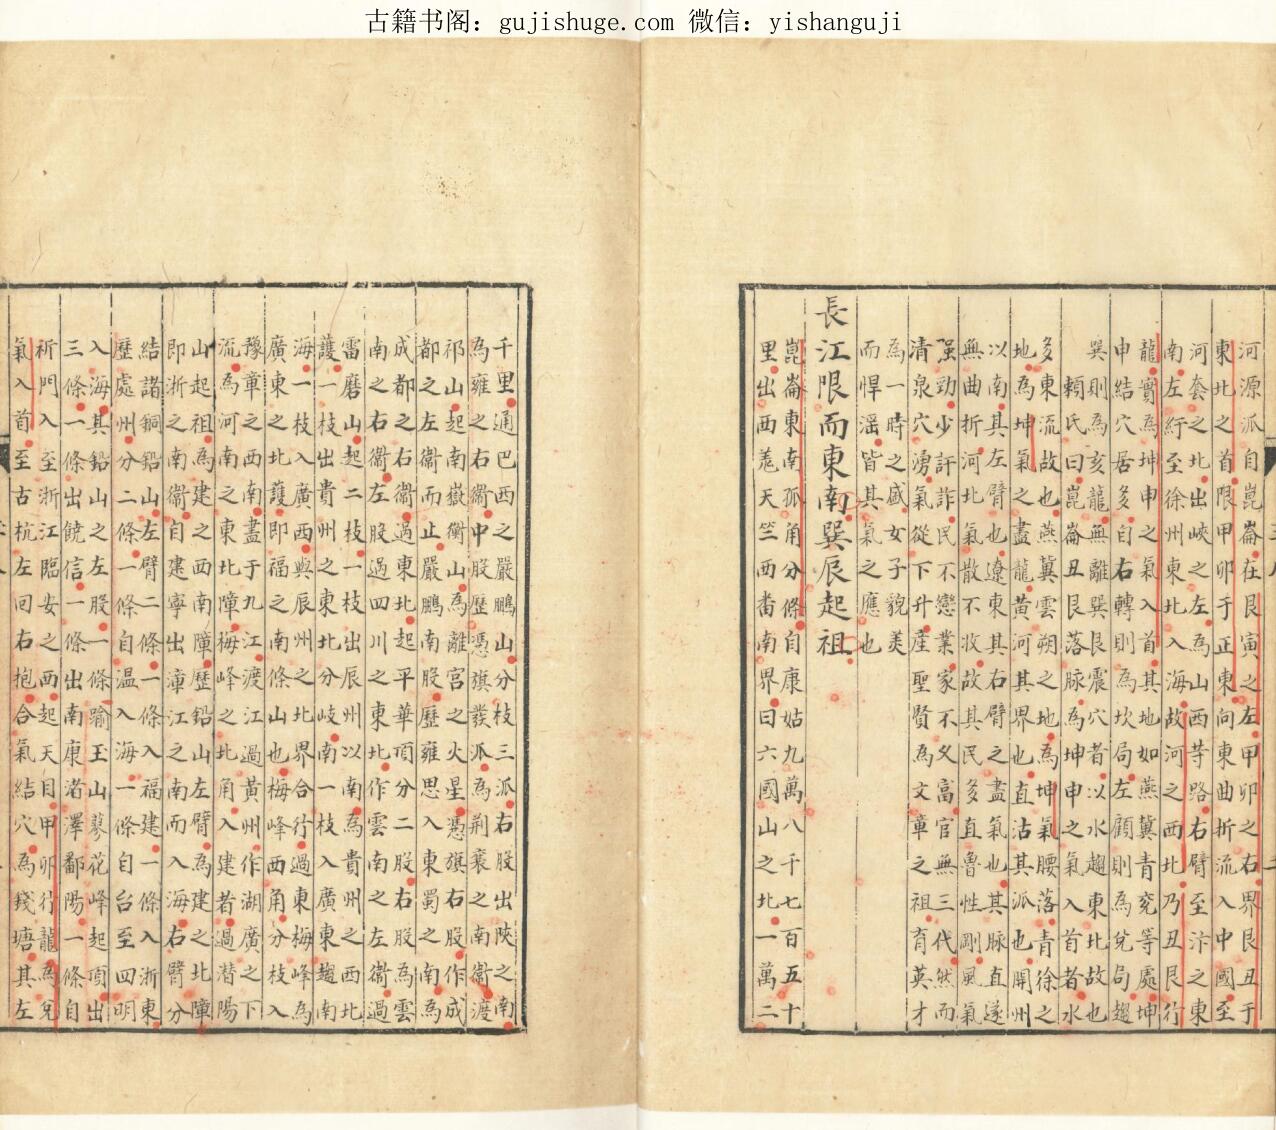 古籍书阁：gujishuge.com 微信：yishanguji
河源派自崑崙在艮寅之左甲卯之右界艮丑于
東北之首限甲卯于正東向東曲折流入中國至
河套之北出峽之左為山西等路右臂至汴之東
南左紆至徐州東北入海故河之西北乃丑艮行
龍實為坤申之氣入首其地如燕冀青兖等處坤
申結穴居多自右轉則為坎局左顧則為兌局趨
巽則為亥龍無離巽艮震穴者以水趨東北故也
賴氏曰崑崙丑艮落脉為坤申之氣入首者水
多東流故也燕冀雲朔之地為坤氣腰落青徐之
地為坤氣之盡龍黃河其界也直沽其派也開州
以南其左臂也遼東其右臂之盡氣也其脉直遂
無曲折河北氣散不收故其民多直魯性剛風氣
强勁少許詐民不戀業家不乂富官無三代然而
清泉穴湧氣從下升産聖賢為文章之祖育英才
為一時之盛女子貌美
而悍滛皆其氣之應也
長江限而東南巽辰起祖
崑崙東南孤角分條自康姑九萬八千七百五十
里出西羗天竺西畨南界曰六國山之北一萬二
千里通巴西之嚴鵬山分枝三派右股出陜之南
為雍之右衢中股歷憑旗發派為荆襄之南衢渡
祁山起南嶽衡山為離宮之火星憑旗右股作成
都之左衢而止嚴鵬南股歷雍思入東蜀之南為
成都之右衢過東北起平華頂分二股右股為雲
南之右衢左股過四川之東北作雲南之左衢過
雷磨山起二枝一枝出辰州以南為貴州之西北
護一枝出貴州之東北分岐南一枝入廣東趨南
海一枝入廣西與辰州之北界合行過東梅峰為
廣東之北護即福之南條山也梅峰西角分枝入
豫章之西南盡于九江渡江過黃州作湖廣之下
流為河南之東北障梅峰之北角入建者過潛陽
山起祖為建之西南障歷鉛山左臂為建之北障
即浙之南衢自建寧出漳江之南而入海右臂分
結諸銅鉛山左臂二條一條入福建一條入浙東
歷處州分二條一條自温入海一條自台至四明
入海其鉛山之左股一條踰玉山蓼花峰起頂出
三條一條出饒信一條出南康渚澤鄱陽一條自
祈門入至浙江臨安之西起天目甲卯行龍為兌
氣入首至古杭左回右抱合氣結穴為錢塘其左